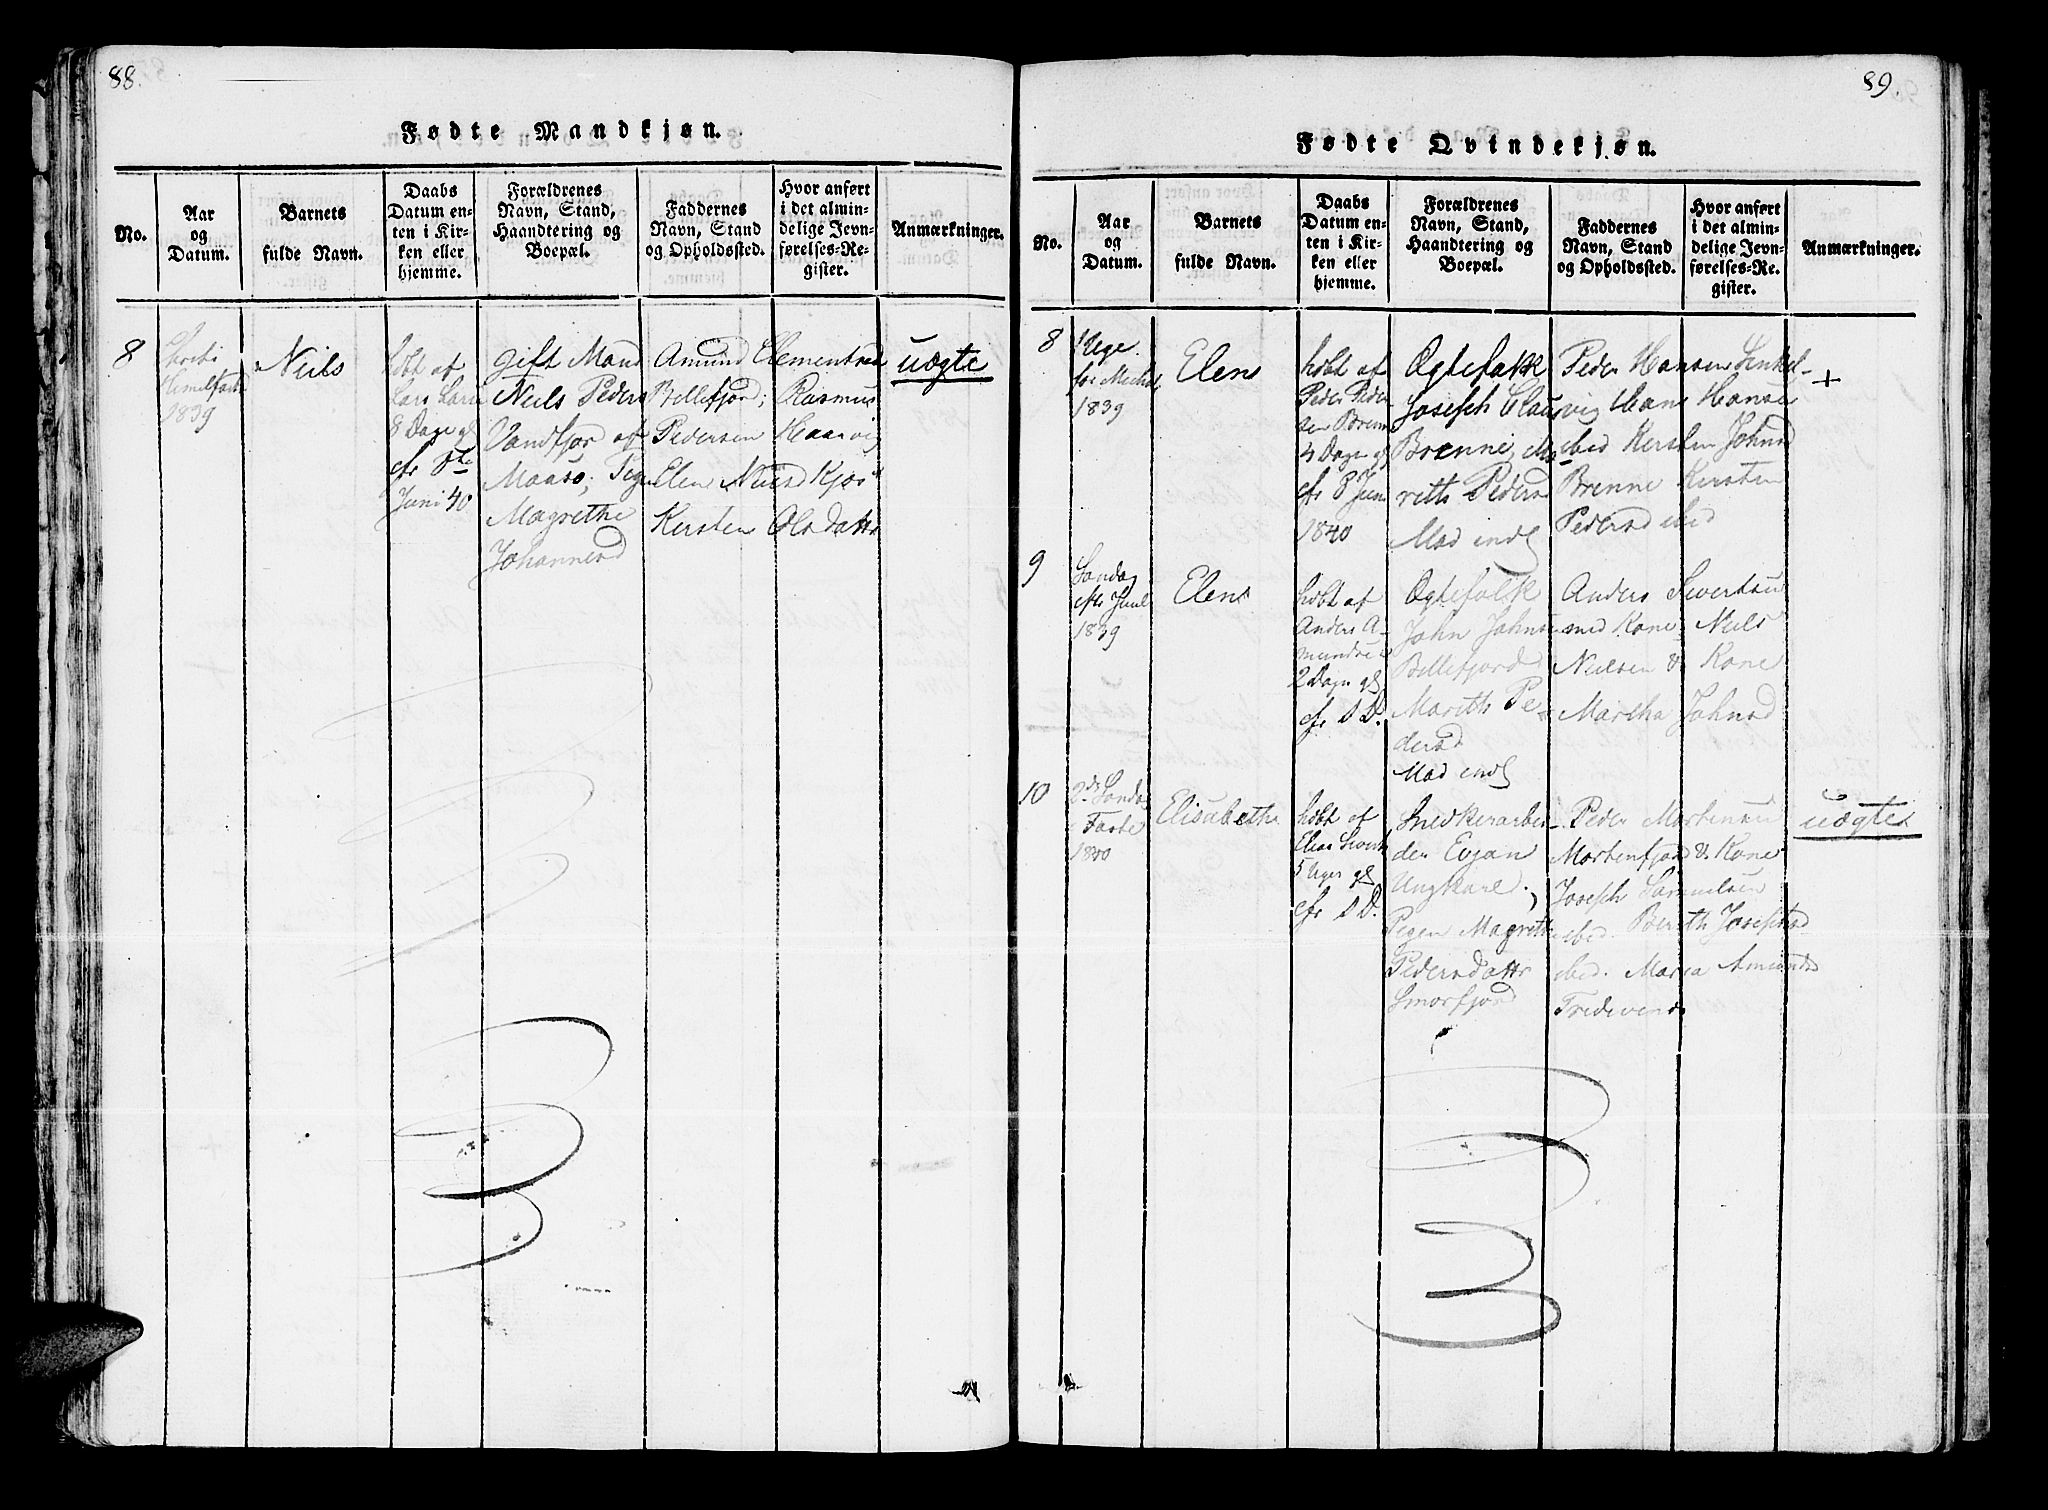 88.
Fødte Mandkjøn.
No.
Aar
og
Datum.
Barnets
fulde Navn.
Daabs
Datum en-
ten i Kir-
ken eller
hjemme.
Forældrenes
Navn, Stand,
Haandtering og
Boepæl.
Faddernes
Navn, Stand
og Opholdssted.
Hvor anført
i det almin-
delige Jevn-
førelses-Re-
gister.
Anmærkninger.
8
Christi
Himelfart
1839
Niels
høbt af
Lars Lars
8 Dage gl
cfr 8de
Juni 40
Gift Mand
Niels Peders
Vandfjor af
Maasø; Pige
Magrethe
Johannesd
Amund Clementsen
Bellefjord; Rasmus
Pedersen Haarvig
Elen Nilsd Kjos
Kersten Olsdattr
uægte
89.
Fødte Qvindekjøn.
No.
Aar
og
Datum.
Barnets
fulde Navn.
Daabs
Datum en-
ten i Kir-
ken eller
hjemme.
Forældrenes
Navn, Stand,
Haandtering og
Boepæl.
Faddernes
Navn, Stand
og Opholdssted.
Hvor anført
i det almin-
delige Jevn-
førelses-Re-
gister.
Anmærkninger.
8
1 Uge
før Michel
1839
Elen
høbt af
Peder Peder
sen Brenne
4 Dage gl
cfr 8 Juni
1840
Ogtefolk
Joseph Claus
Brenne, Ma
reth Pedersd
Mad indl
Peder Hansen Smkel-
vig Hans Hansen
ibid Kersten Johnsd
Brenne Kirsten
Pedersd ibid
+
9
Søndag
eftr Juul
1839
Elen
høbt af
Anders A-
mundse
2 Dage gl
cfr S D.
Ogtefolk
John Johns
Bellefjord
Mareth Pe-
dersd
Mad indl
Anders Sivertsen
med Kone Niels
Nielsen & Kone
Martha Johnsd
10
2den Søndag
i Faste
1840
Elisabeth
høbt af
Elias Sivert
5 Uger gl
cfr S D.
Snedkerarbei-
der Evjan
Ungkarl;
Pigen Magreth
Pedersdattr
Smorfjord
Peder Mortensen
Mortenfjord & Kone
Joseph Samuelsen
ibid. Bereth Josephsd
ibid. Maria Amundsd
Trediverd
uægte